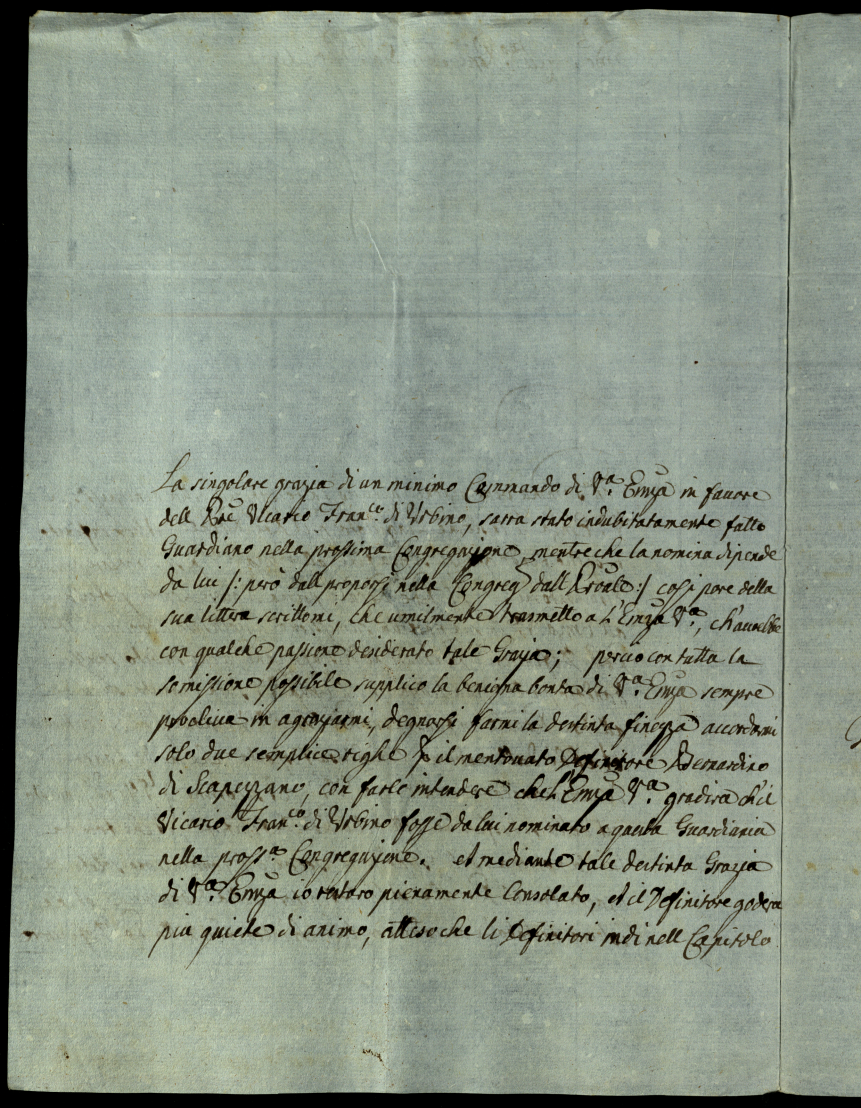 La singolare grazia di un minimo Commando di V.ª Emza in fauore
dell Rñe Vicario Fran.co di Vrbino, sarra stato indubitatamente fatto
Guardiano nella prossima Congregazione, mentre che la nomina dipende
da lui /: però dall proporsi nella Congreg dall :/ cossi pare della
sua littera scrittomi, che umilmente trasmetto a L'Emza V.ª, ch'auerebbe
con qualche passione desiderato tale Grazia; percio con tutta la
somissione possibile supplico la benigna bonta di V.ª Emza sempre
procliua in agraziarmi, degnarsi farmi la destinta finezza accordarmi
solo due semplice righe il mentouato Definitore Bernardino
di Scapezzano, con farle intendere che L'Emza V.ª gradira ch'il
Vicario Fran.co di Vrbino fosse da lui nominato a questa Guardiania
nella pross.ª Congregazione. et mediante tale destinta Grazia
di V.ª Emza io restaro pienamente Consolato, et il Definitore godera
piu quiete di animo, atteso che li Definitori indi nell Capitolo